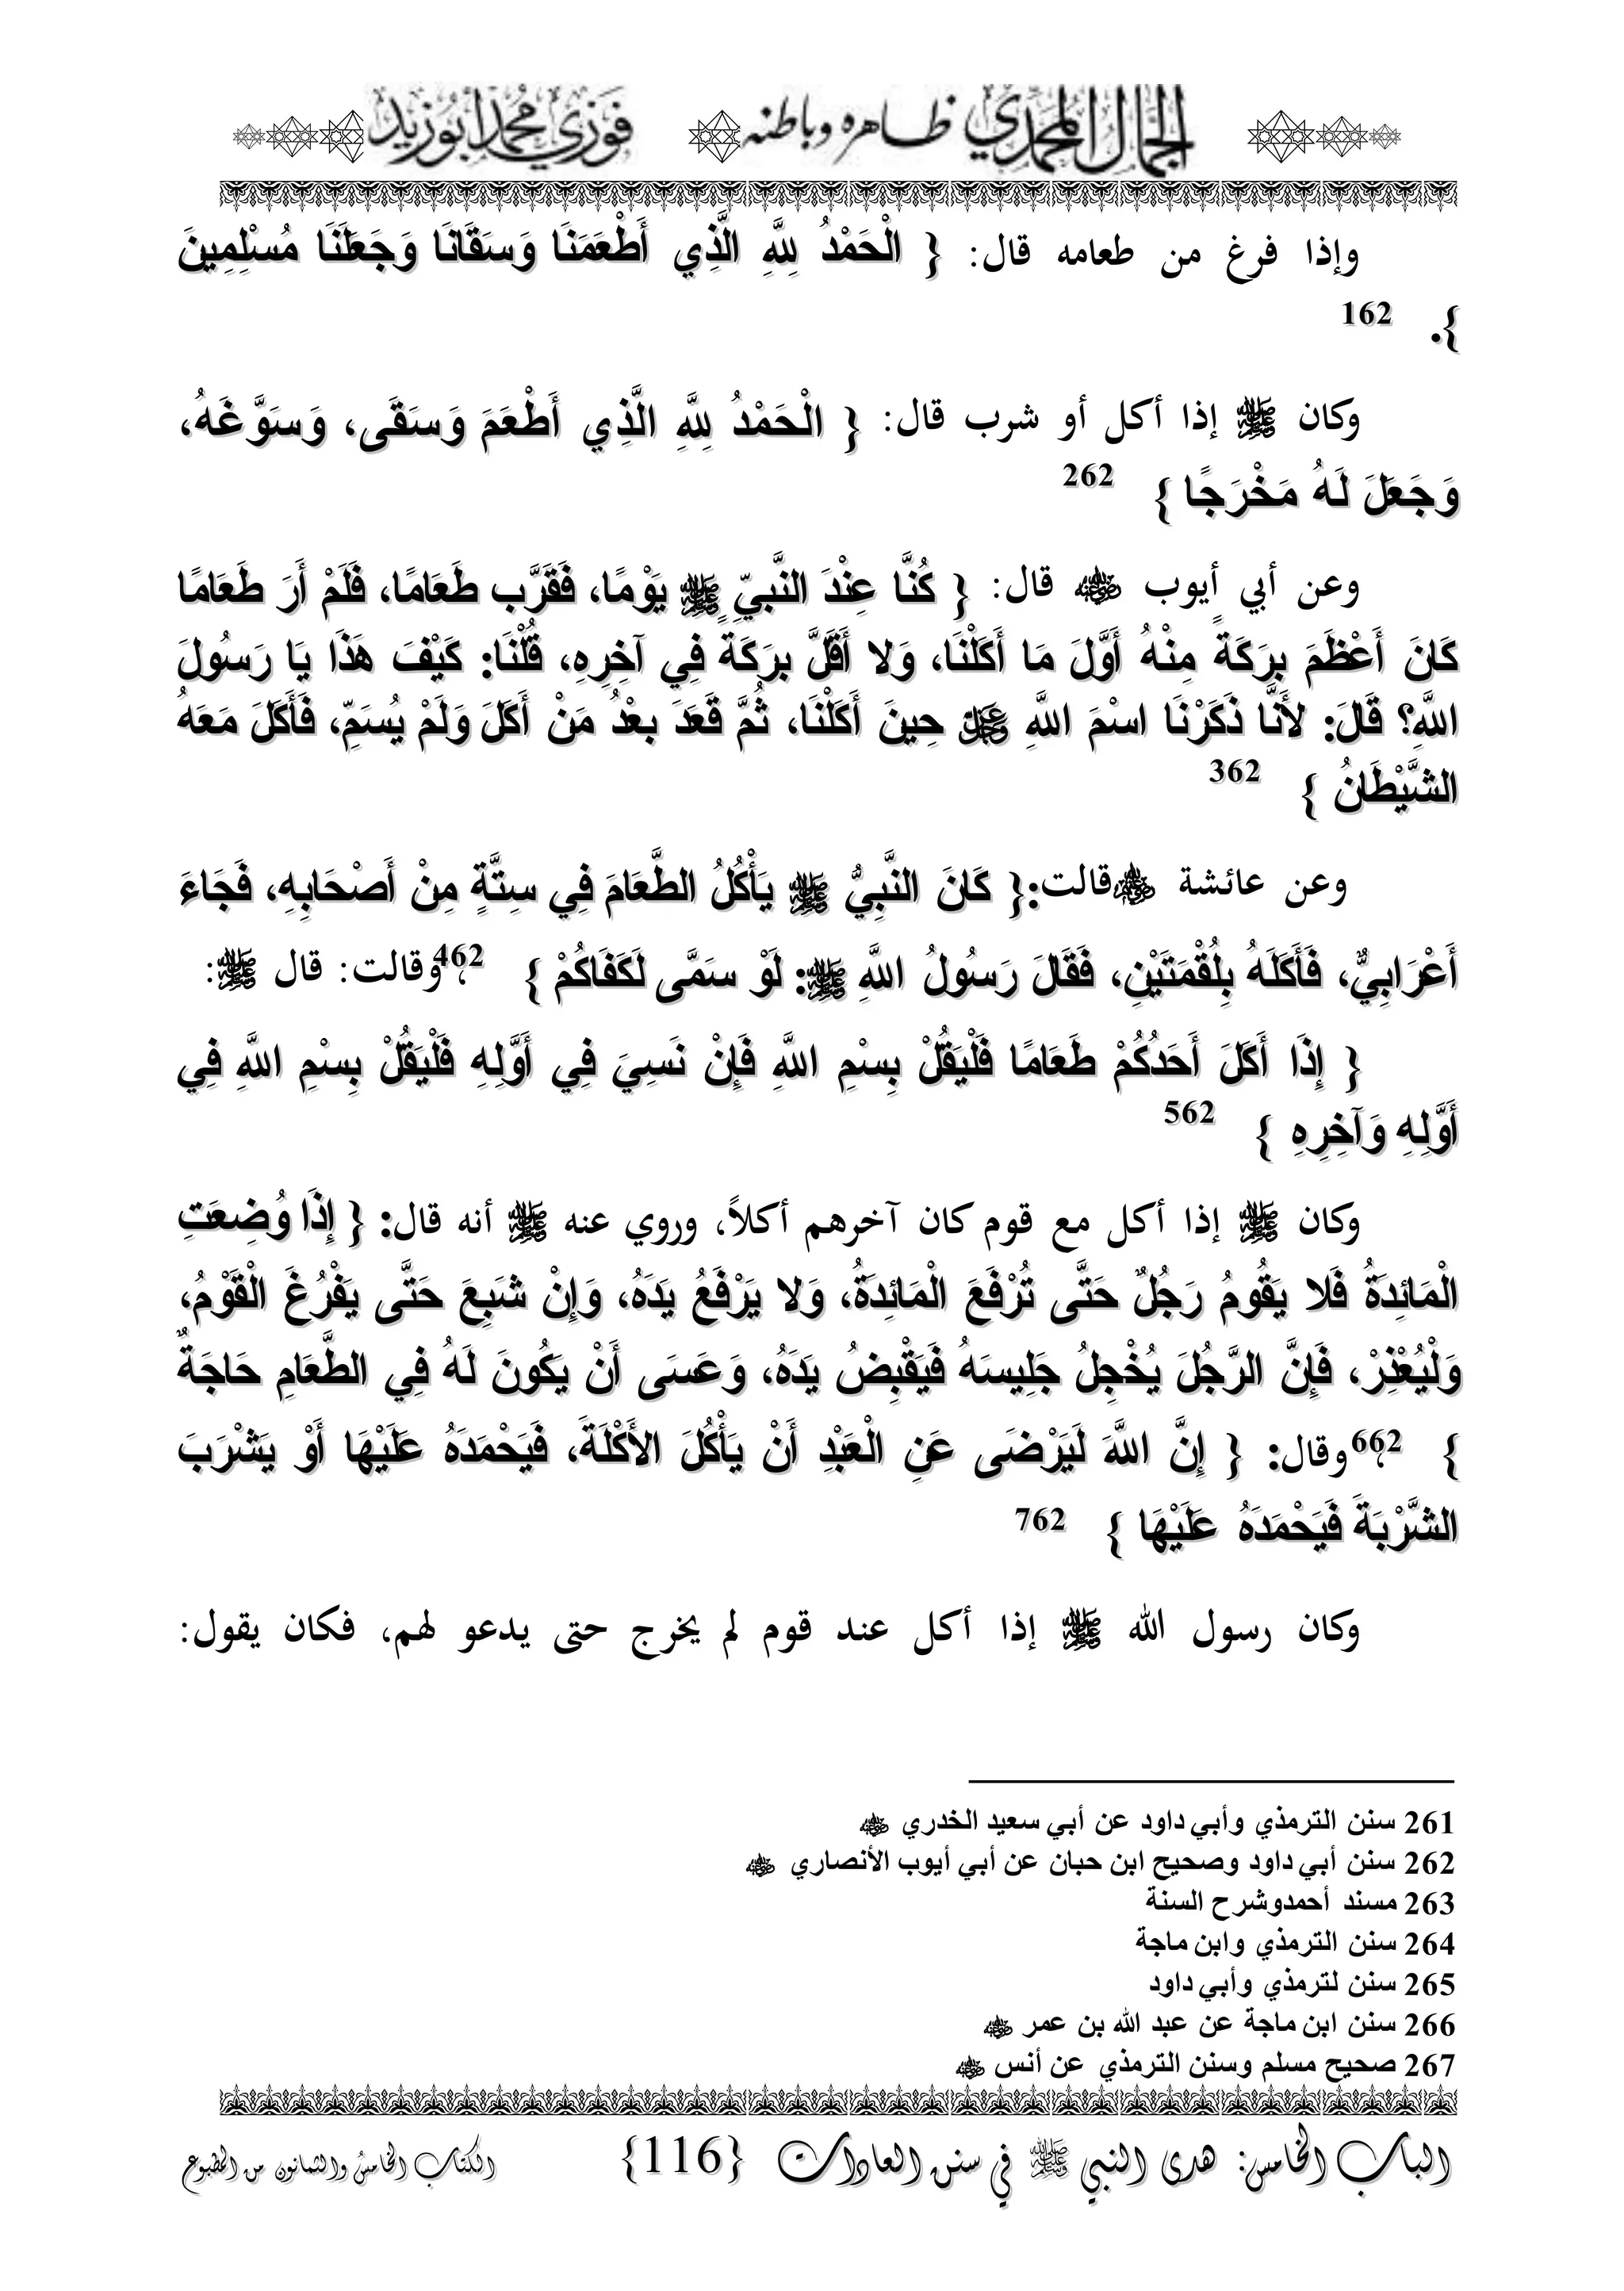 الجمال المحمدي ظاهره وباطنه فوزي محمد أبوزيد
وإذا فرغ من طعامه قال: { الْحَمْدُ لِلَّهِ الَّذِي أَطْعَمَنَا وَسَقَانَا وَجَعَلَنَا مُسْلِمِينَ
}. 162
وكان ﷺ إذا أكل أو شرب قال: { الْحَمْدُ لِلَّهِ الَّذِي أَطْعَمَ وَسَقَى، وَسَوَّغَهُ،
وَجَعَلَ لَهُ مَخْرَجًا } 262
وعن أبي أيوب ﷺ قال: { كُنَّا عِنْدَ النَّبِيِّ ﷺ يَوْمًا، فَقَرَّب طَعَامًا، فَلَمْ أَرَ طَعَامًا
كَانَ أَعْظَمَ بِرَكَةً مِنْهُ أَوَّلَ مَا أَكَلْنَا، وَلا أَقَلَّ بِرَكَةً فِي آخِرِهِ، قُلْنَا: كَيْفَ هَذَا يَا رَسُولَ
اللَّهِ؟ قَالَ: لأَنَّا ذَكَرْنَا اسْمَ اللَّهِ حِينَ أَكَلْنَا، ثُمَّ قَعَدَ بعْدُ مَنْ أَكَلَ وَلَمْ يُسَمِّ، فَأَكَلَ مَعَهُ
الشَّيْطَانُ } 362
وعن عائشة قالت:{ كَانَ النَّبِيُّ ﷺ يَأْكُلُ الطَّعَامَ فِي سِتَّةٍ مِنْ أَصْحَابِهِ، فَجَاءَ
أَعْرَابِيٌّ، فَأَكَلَهُ بِلُقْمَتَيْنِ، فَقَالَ رَسُولُ اللَّهِ ﷺ: لَوْ سَمَّى لَكَفَاكُمْ } 462، وقالت: قال ﷺ:
{ إِذَا أَكَلَ أَحَدُكُمْ طَعَامًا فَلْيَقُلْ بِسْمِ اللَّهِ فَإِنْ نَسِيَ فِي أَوَّلِهِ فَلْيَقُلْ بِسْمِ اللَّهِ فِي
أَوَّلِهِ وَآخِرِهِ } 562
وكان ﷺ إذا أكل مع قوم كان آخرهم أكلاً، وروي عنه ﷺ أنه قال: { إِذَا وُضِعَتِ
الْمَائِدَةُ فَلا يَقُومُ رَجُلٌ حَتَّى تُرْفَعَ الْمَائِدَةُ، وَلا يَرْفَعُ يَدَهُ، وَإِنْ شَبِعَ حَتَّى يَفْرُغَ الْقَوْمُ،
وَلْيُعْذِرْ، فَإِنَّ الرَّجُلَ يُخْجِلُ جَلِيسَهُ فَيَقْبِضُ يَدَهُ، وَعَسَى أَنْ يَكُونَ لَهُ فِي الطَّعَامِ حَاجَةٌ
} 662، وقال: { إِنَّ اللَّهَ لَيَرْضَى عَنِ الْعَبْدِ أَنْ يَأْكُلَ الأَكْلَةَ، فَيَحْمَدَهُ عَلَيْهَا أَوْ يَشْرَبَ
الشَّرْبَةَ فَيَحْمَدَهُ عَلَيْهَا } 762
وكان رسول الله ﷺ إذا أكل عند قوم لم يخرج حتى يدعو لهم، فكان يقول:
261 سنن الترمذي وأبي داود عن أبي سعيد الخدري
262 سنن أبي داود وصحيح ابن حبان عن أبي أيوب الأنصاري
263 مسند أحمدوشرح السنة
264 سنن الترمذي وابن ماجة
265 سنن لترمذي وأبي داود
266 سنن ابن ماجة عن عبد الله بن عمر
267 صحيح مسلم وسنن الترمذي عن أنس
الباب الخامس: هدى النبي ﷺ في سنن العادات {116} الكتاب الخامسُ والثمانون من المطبوع